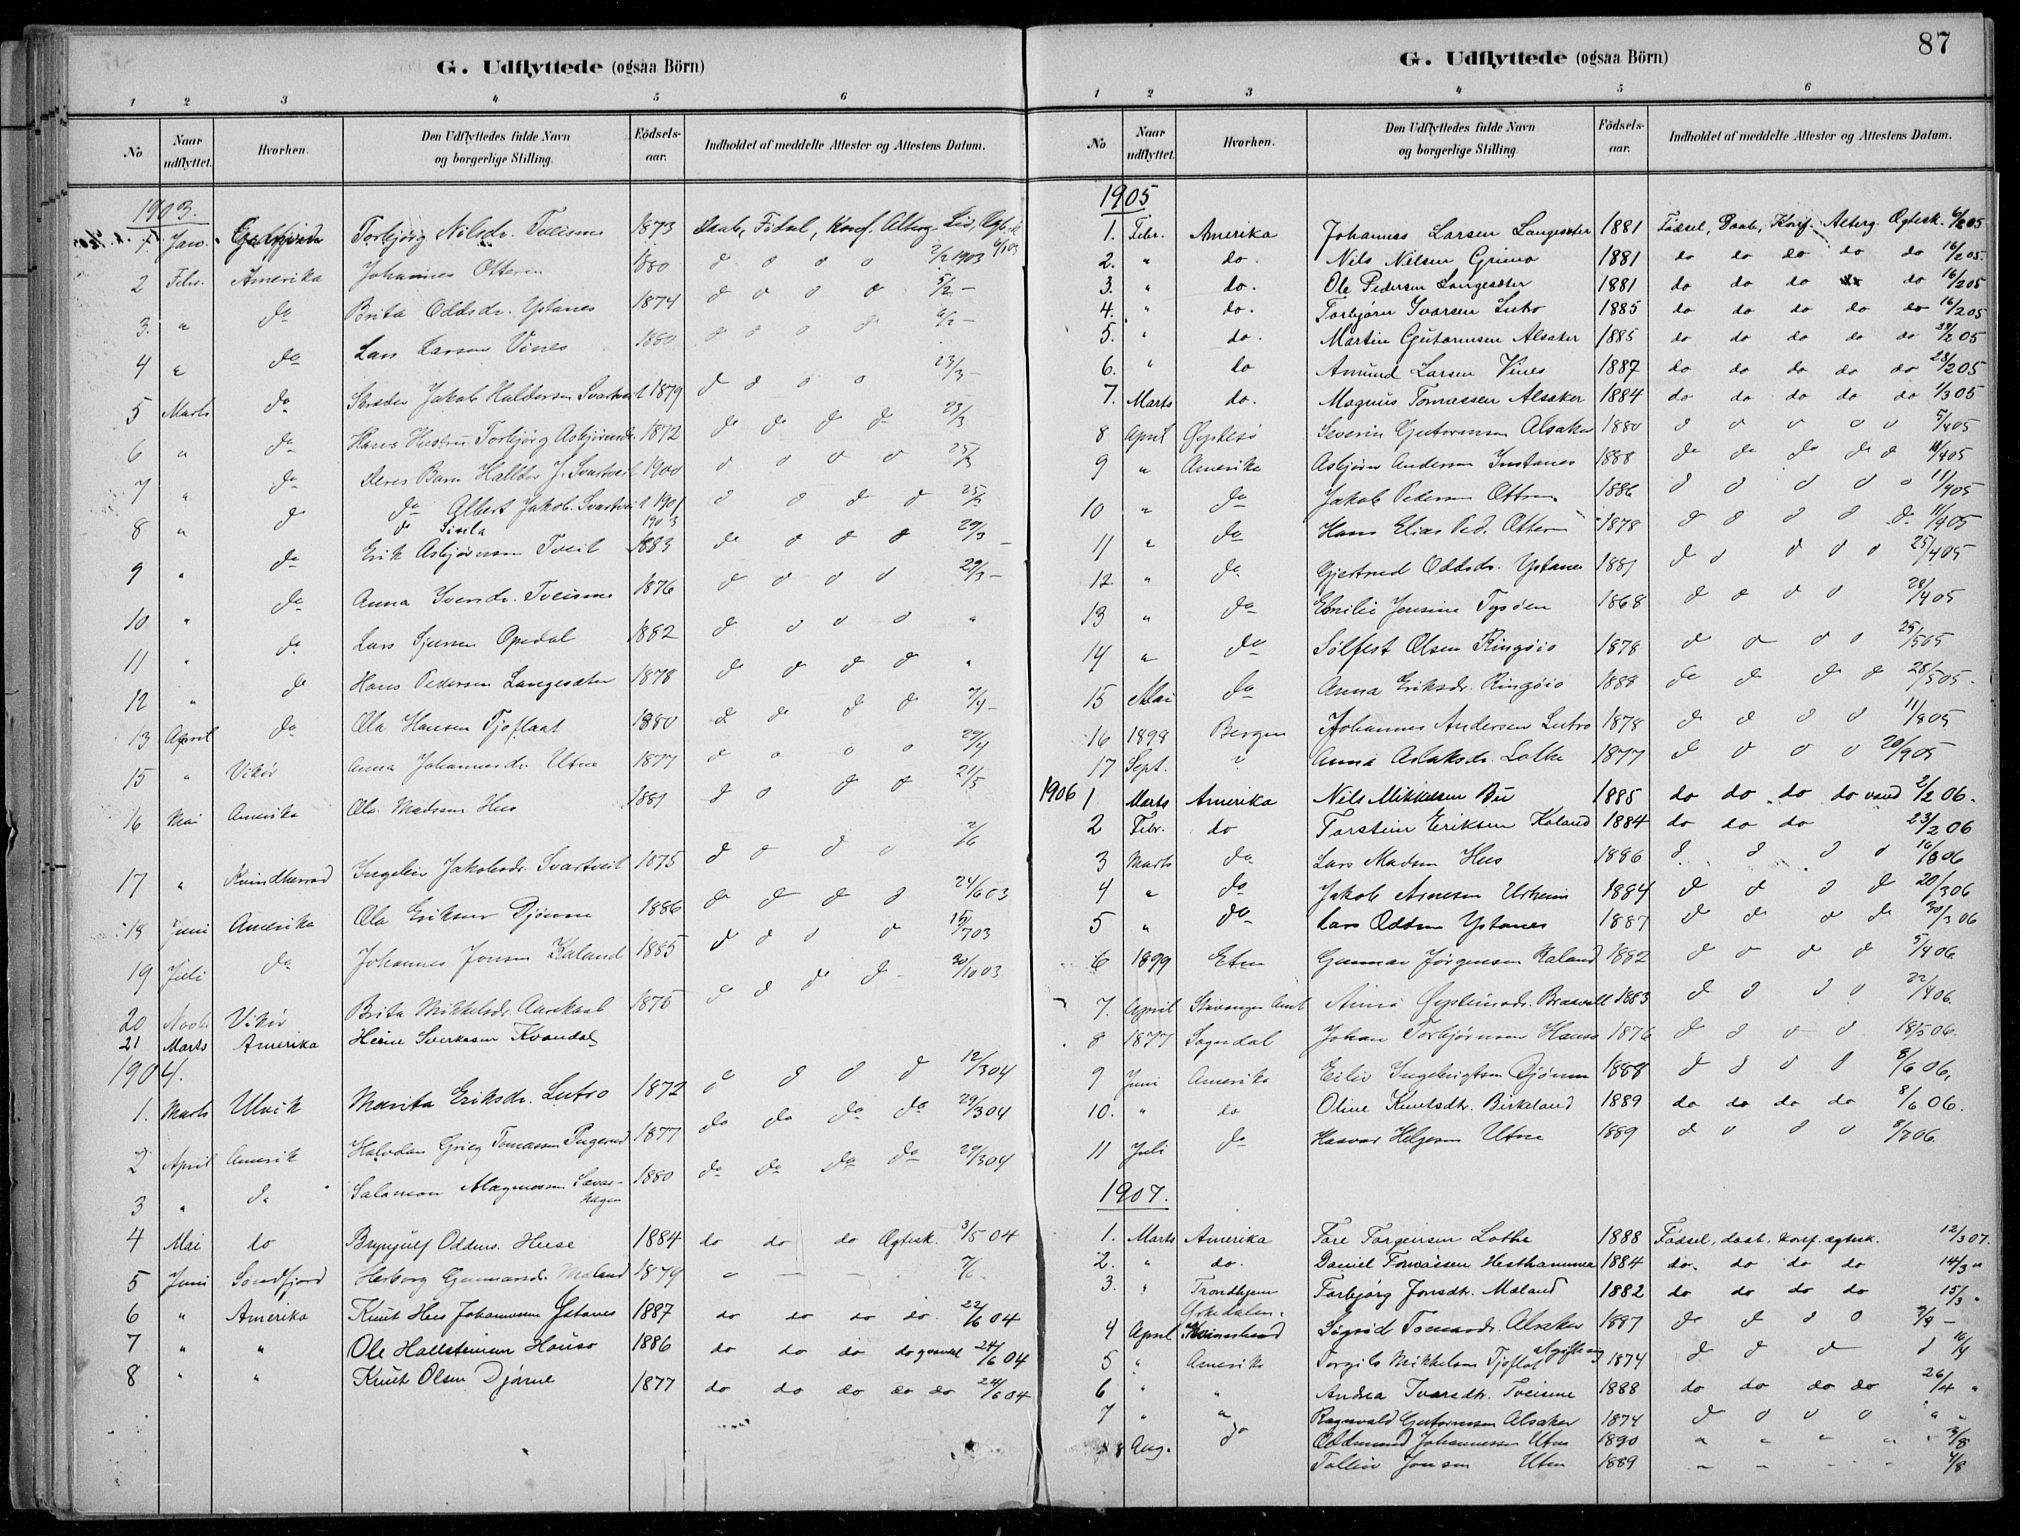 G. Udflyttede (ogsaa Börn)
1 2 3 4 5 6
No Naar udflyttet. Hvorhen. Den Udflyttedes fulde Navn og borgerlige Stilling. Födsels-aar. Indholdet af meddelte Attester og Attestens Datum.
1903.
1. Jan. Torbjørg Nilsdr. Tveisme 1873 Daab, Födsel, Konf.
2 Febr. Amerika Johannes Otteren 1880 2/2 1903
3. " do Brita Oddsdr. Ystanes 1874 5/2 –
4 " do Lars Larsen Vines 1880 6/2 –
5 Marts do Jakob Haldorsen Svartveit 1879 23/3 –
6 " do Hans Hustru Torbjørg Asbjørnsdr. 1872 23/3
7 " do Deres Barn Halldor J. Svartveit 1900 25/3
8 " do do Albert Jakob. Svartveit 1901 25/3
do Sisela 1903
9 " do Erik Asbjørnsen Tveit 1883 29/3 –
10 " do Anna Iversdr. Tveisme 1876 29/3 –
11 " do Lars Opedal 1882 "
12 " do Hans Pedersen Langesæter 1878 "
13 April do Ola Hansen Tjoflaat 1880 7/4 –
15 " Vikör Anna Johannesdr. Utne 1877 29/4
16 Mai Amerika Ola Madsen Hus 1881 21/5
17 " Kvindherred Ingeleiv Jakobsdr. Svartveit 1875 2/6
18 Juni Amerika Ola Eriksen Djönne 1886 24/6 03
19 Juli do Johannes Jonsen Kaland 1885 15/7 03
20 Novbr Vikör Brita Mikkelsdr. Aarekaal 1875 20/10 03
21 Marts Amerika Heine Sverkesen Kvandal
1904.
1. Marts Ulvik Marita Eriksdr. Lutro 1872 12/3 04
2 April Amerik Halvdan Grieg Tomassen 1877 do do do do 29/3 04
3 " do Salamon Magnussen Sævarhagen 1880 do do do do 29/3 04
4 Mai do Brynjulf Oddms. Huse 1884 do do do Ogtesk. 3/5 04
5 Juni Söndfjord Herborg Gunnarsdr. Mæland 1879 7/6
6 " Amerika Knut Hus Johannesen Ystanes 1887 do do do do 22/6 04
7 " " Ole Hallsteinsen Hauso 1886 do do do do 24/6 04
8 " " Knut Olsen Djønne 1877 do do do do do 24/6 04
87
G. Udflyttede (ogsaa Börn)
1 2 3 4 5 6
No Naar udflyttet. Hvorhen. Den Udflyttedes fulde Navn og borgerlige Stilling. Födsels-aar. Indholdet af meddelte Attester og Attestens Datum.
1905
1. Febr. Amerika Johannes Larsen Langesæter 1881 Födsel, Daab, Konf. Atterg. Ogtesk. 6/2 05
2. " do. Nils Nilsen Grimo 1881 do do do do do 16/2 05.
3. " do. Ole Pedersen Langesæter 1881 do do do do 16/2 05
4. " do. Torbjørn Ivarsen Lutro 1885 do do do do do 16/2 05
5. " do. Martin Gutormsen Alsaker 1885 do do do do do 28/2 05
6. " do Amund Larsen Vines 1887 do do do do do 28/2 05
7. Marts do. Magnus Tomassen Alsaker 1884 do do do do do 1/3 05
8 April Öystesö Severin Gutormsen Alsaker 1880 5/4 05
9 " Amerika Asbjørn Andersen Instanes 1888 11/4 05
10 " do Jakob Pedersen Otteren 1886 11/4 05
11 " do Hans Elias Ped. Otteren 1878 11/4 05
12 " do Gjertrud Oddsdr. Ystanes 1881 25/4 05
13 " do Emilie Jensine Tysöen 1868 28/4 05
14 " do Sölfest Olsen Ringöio 1878 25/5 05
15 Mai do Anna Eriksdr. Ringöio 1888 28/5 05.
16 1898 Bergen Johannes Andersen Lutro 1878 11/8 05
17 Sept. " Anna Aslaksdr. Lothe 1877 20/9 05
1906 1 Marts Amerika Nils Mikkelsen Bu 1885 do do do do 2/2 06.
2 Febr. do Torstein Eriksen Kaland 1884 do do do 23/2 06
3 Marts do Lars Madsen Hus 1886 16/3 06
4 " do Jakob Arnesen Urheim 1884 20/3 06
5 " do Lars Oddsen Ystanes 1887 30/3 06
6 1899 Etne Gunnar Jørgensen Kaland 1882 5/4 06.
7. April Stavanger Amt Anna Öysteinsdr. 1883 22/4 06.
8 1877 Sogndal Johan Torbjørnsen Hauso 1876 18/5 06.
9 Juni Amerika Eiliv Ingebrigtsen Djönne 1888 8/6 06,
10. " do Oline Knutsdtr. Birkeland 1889 do do do do 8/6 06.
11 Juli do Hasvar Helgesen Utne 1889 8/7 06.
1907.
1. Marts Amerika Tore Torgersen Lothe 1888 Födsel, daab, konf. ægtesk. 12/3 07.
2. " do. Daniel Tomassen Hesthammer 1884 do. do do do 14/3 "
3. " Trondhjem Torbjørg Jonsdtr. Mæland 1882 do do do do 15/3 "
4 April Kvinnherad Sigrid Tomasdr. Alsaker 1887 9/4 –
5 " Amerika Torgils Mikkelsen Tjoflot 1874 16/4
6 " " Andrea Ivarsdtr. Tveisme 1888 do do do do 26/4 "
7 " " Ragnvald Gutormsen Alsaker 1874 " "
8 Aug. do Oddmund Johannessen Utne 1890 " " " " 3/8
Tollev Jonsen Utne 1889 4/8